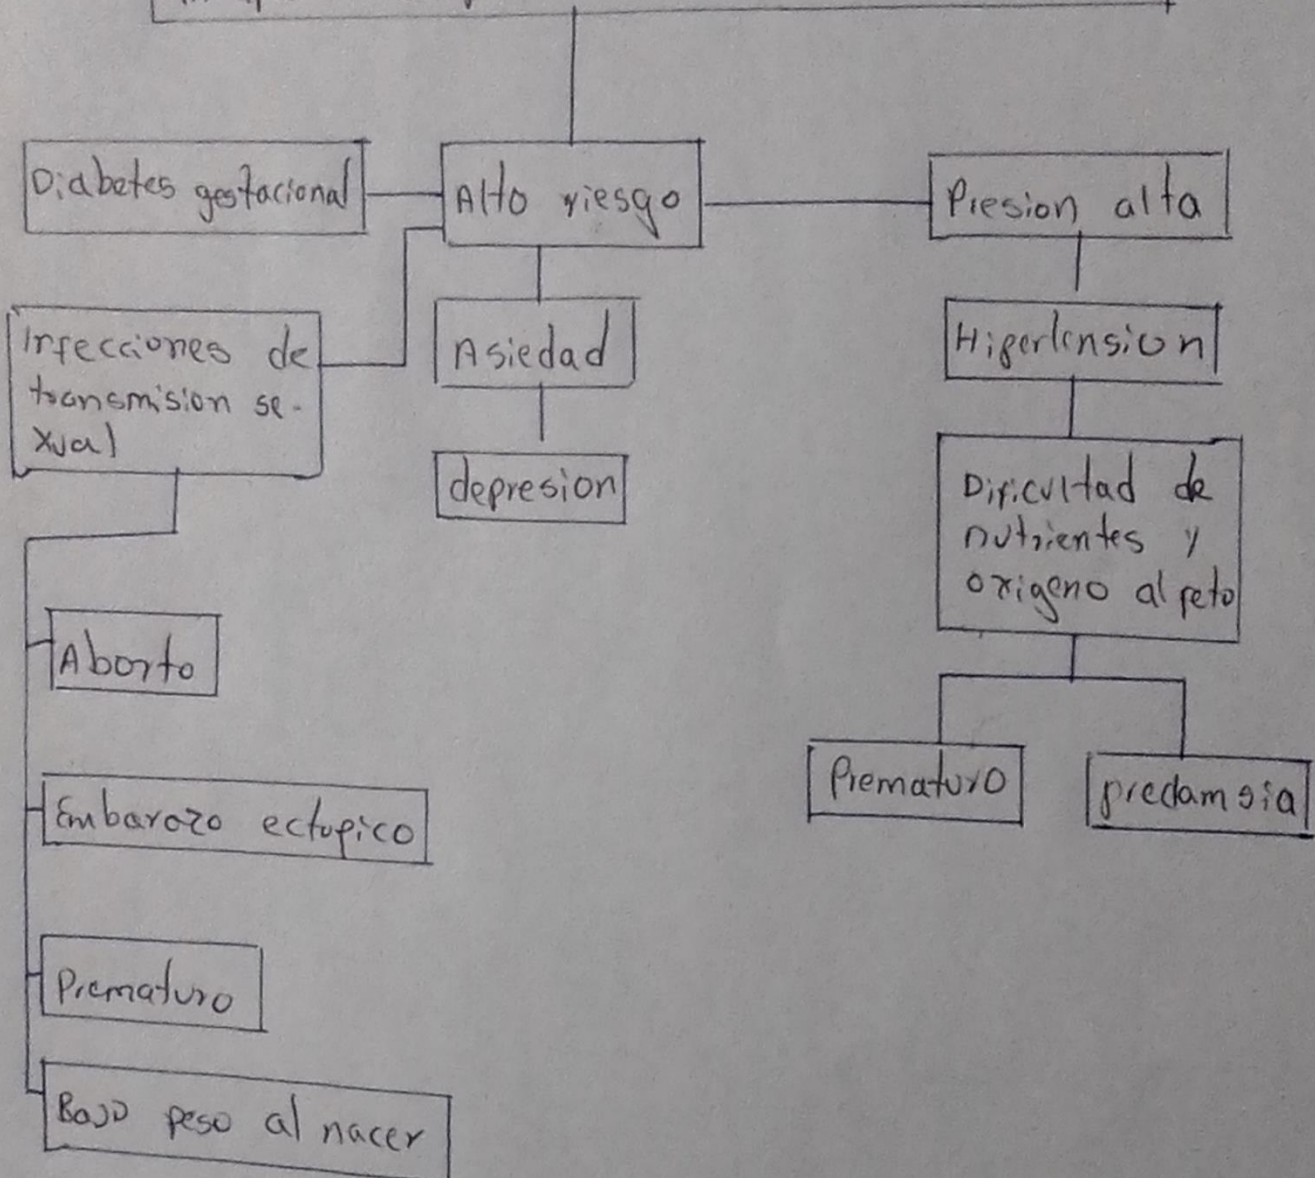 Diabetes gestacional
Alto riesgo
Presion alta
Infecciones de
transmision se-
xual
Asiedad
depresion
Hipertension
Dificultad de
nutrientes y
oxigeno al feto
Prematuro
preclamsia
Aborto
Embarazo ectopico
Prematuro
Bajo peso al nacer